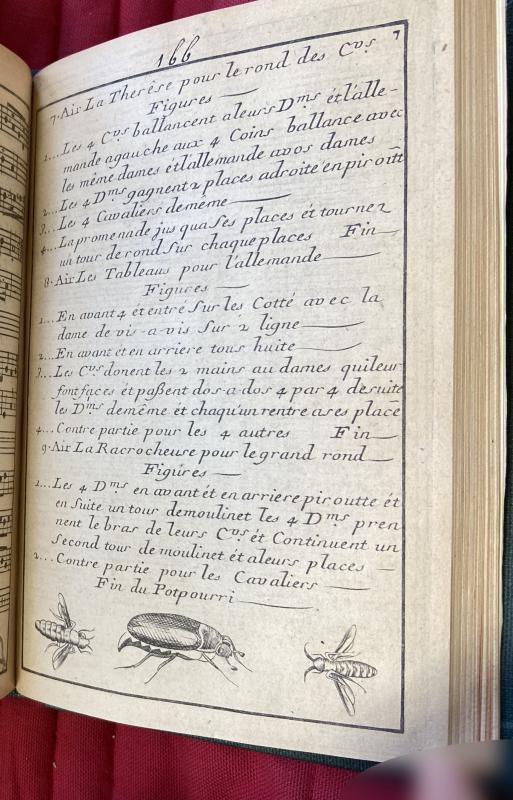 166
7
7. Air La Therêse pour le rond des C.vs
Figures
1... Les 4 C.vs ballancent aleurs D.ms ét l'alle-
mande agauche aux 4 Coins ballance avec
les même dames ét l'allemande avos dames
2... Les 4 D.ms gagnent 2 places adroite en piroütt
3... Les 4 Cavaliers demême
4... La promenade jus qua ses places ét tournez
un tour de rond Sur chaque places Fin
8. Air Les Tableaus pour l'allemande
Figures
1... En avant 4 ét entré Sur les Cotté avec la
dame de vis-a-vis Sur 2 ligne
2... En avant et en arriere tous huite
3... Les C.vs donent les 2 mains au dames qui leur
font faces ét paßent dos-a-dos 4 par 4 de suite
les D.ms demême ét chaqu'un rentre a ses place
4... Contre partie pour les 4 autres Fin
9. Air La Racrocheuse pour le grand rond
Figures
1... Les 4 D.ms en avant ét en arriere piroutte ét
en Suite un tour demoulinet les 4 D.ms pren
nent le bras de leurs C.vs ét Continuent un
Second tour de moulinet ét aleurs places
2... Contre partie pour les Cavaliers
Fin du Potpourri